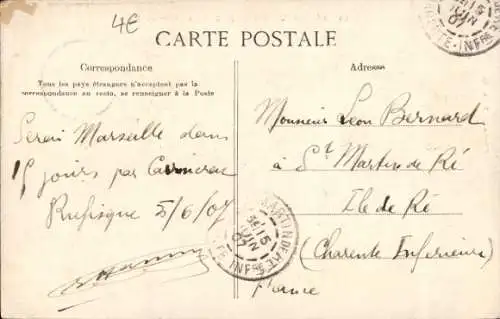 4€
CARTE POSTALE
Correspondance
Tous les pays étrangers n'acceptent pas la
correspondance au recto, se renseigner à la Poste
Serai Marseille dans
15 jours par
Rufisque 5/6/07
Adresse
Monsieur Léon Bernard
à St Martin de Ré
Ile de Ré
(Charente Inférieure)
France
15
JUIN
07
ST MARTIN DE RÉ
15
JUIN
07
TE INFRE